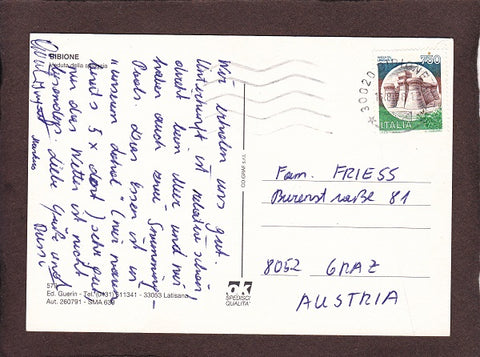 BIBIONE
Veduta della spiaggia
Wir erholen uns gut.
Unterkunft ist relativ schön,
direkt beim Meer und wir
haben auch einen Swimming-
Pool. Das Essen ist in
"unserem Lokal" (wir waren
bereits 5 x dort) sehr gut
nur das Wetter ist nicht
besonders. Liebe Grüße und
Bussi
Markus
57
Ed. Guerin - Tel. (0431) 511341 - 33053 Latisana
Aut. 260791 - SMA 639
CO.GRAF s.r.l.
ok
SPEDISCI
QUALITA'
750
ITALIA
30020
Fam. FRIESS
Burenstraße 81
8052 GRAZ
AUSTRIA